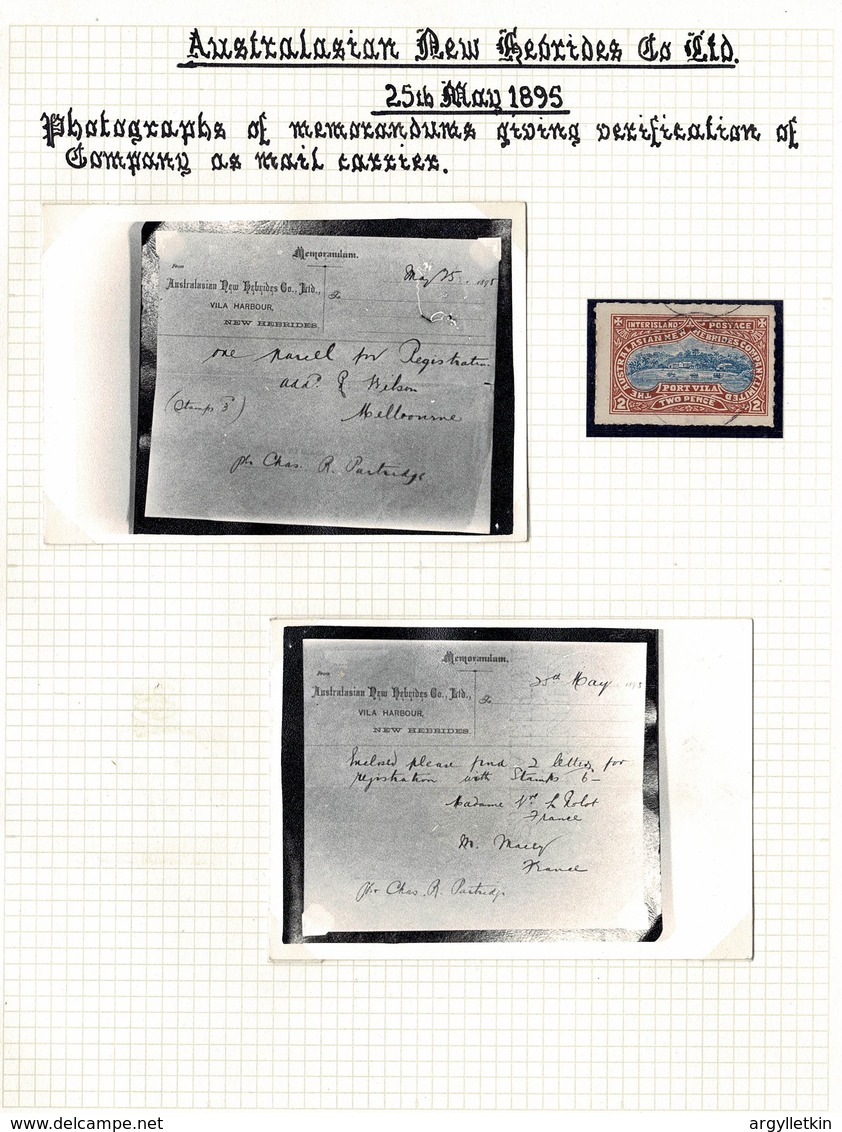 Australasian New Hebrides Co Ltd.
25th May 1895
Photographs of memorandums giving verification of
Company as mail carrier.
Memorandum.
From
May 25. 1895
Australasian New Hebrides Co., Ltd.,
To
VILA HARBOUR,
NEW HEBRIDES.
one parcel for Registration
add. R Wilson
(Stamps 3)
Melbourne
pr Chas. R. Partridge
INTERISLAND POSTAGE
THE AUSTRALASIAN NEW HEBRIDES COMPANY LIMITED
PORT VILA
2 TWO PENCE 2
Memorandum.
From
25th May 1895
Australasian New Hebrides Co., Ltd.,
To
VILA HARBOUR,
NEW HEBRIDES.
Enclosed please find 2 letters for
registration with Stamps 6
Madame
France
M.
France
pr Chas. R. Partridge
delcampe.net
argylletkin